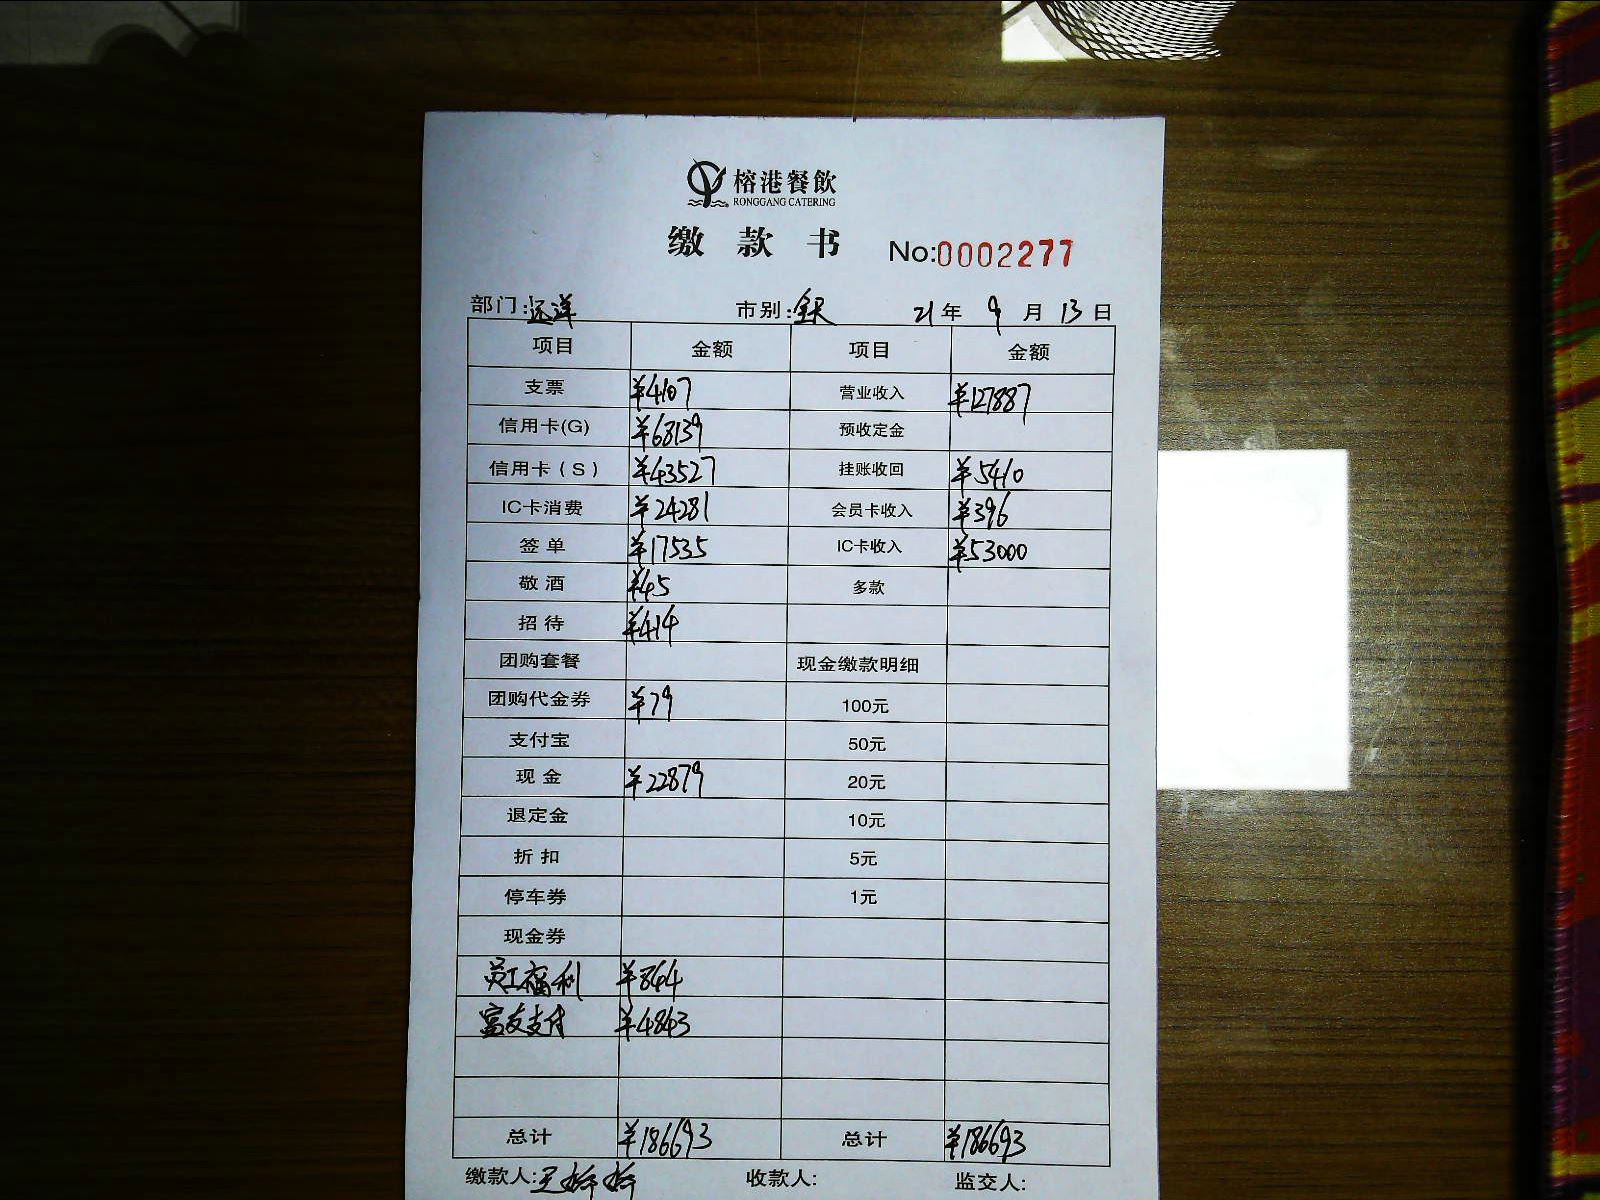 榕港餐飲
RONGGANG CATERING
缴款书 No:0002277
部门:远洋 市别:全天 21年 9月 13日
项目 金额 项目 金额
支票 ¥4107 营业收入 ¥127887
信用卡(G) ¥68139 预收定金
信用卡(S) ¥43527 挂账收回 ¥5410
IC卡消费 ¥24281 会员卡收入 ¥396
签单 ¥17535 IC卡收入 ¥53000
敬酒 ¥45 多款
招待 ¥414
团购套餐 现金缴款明细
团购代金券 ¥79 100元
支付宝 50元
现金 ¥22879 20元
退定金 10元
折扣 5元
停车券 1元
现金券
员工福利 ¥844
富友支付 ¥4843
总计 ¥186693 总计 ¥186693
缴款人: 收款人: 监交人: